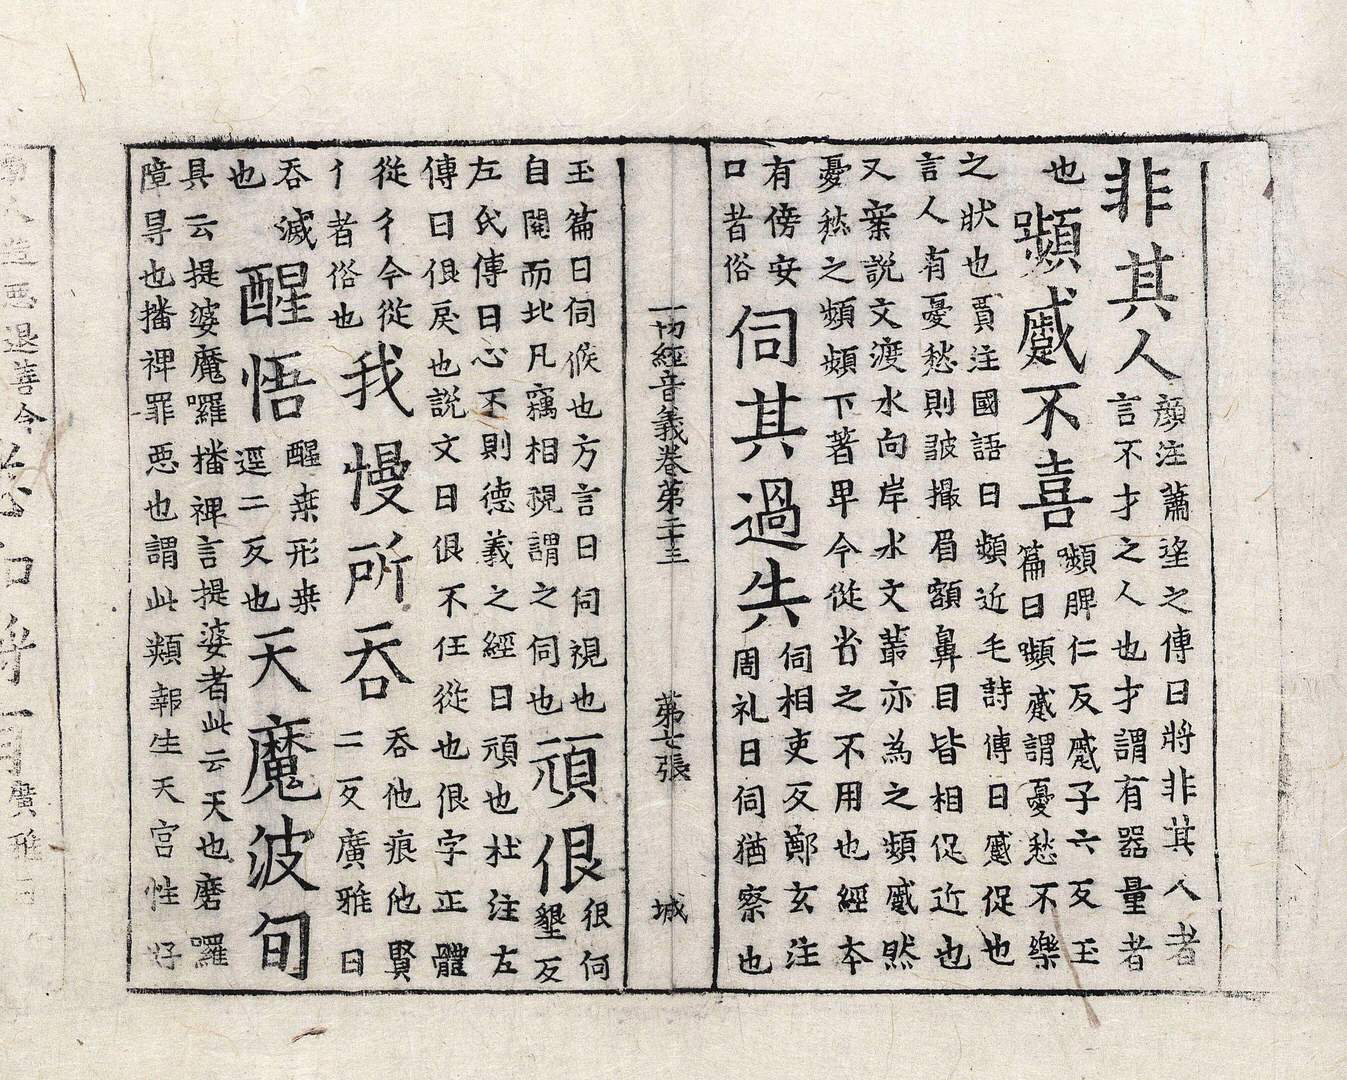 非其人顔注蕭望之傳曰將非其人者
言不才之人也才謂有器量者
也嚬蹙不喜嚬脾仁反蹙子六反玉
篇曰嚬蹙謂憂愁不樂
之狀也賈注國語曰頻近毛詩傳曰蹙促也
言人有憂愁則皺撮眉額鼻目皆相促近也
又案說文渡水向岸水文叢亦為之頻蹙然
憂愁之頻頻下著卑今從省之不用也經本
有傍安
口者俗
伺其過失伺相吏反鄭玄注
周礼曰伺猶察也
一切經音義卷第二十三 第七張 城
玉篇曰伺候也方言曰伺視也
自關而北凡竊相視謂之伺也
頑佷佷何
墾反
左氏傳曰心不則德義之經曰頑也杜注左
傳曰佷戾也說文曰佷不任從也佷字正體
從彳今從
亻者俗也
我慢所吞吞他痕他賢
二反廣雅曰
吞滅
也
醒悟醒桒形桒
逕二反也
天魔波旬
具云提婆魔囉播裨言提婆者此云天也磨囉
障㝵也播裨罪惡也謂此類報生天宮性好
造惡退善令
廣雅